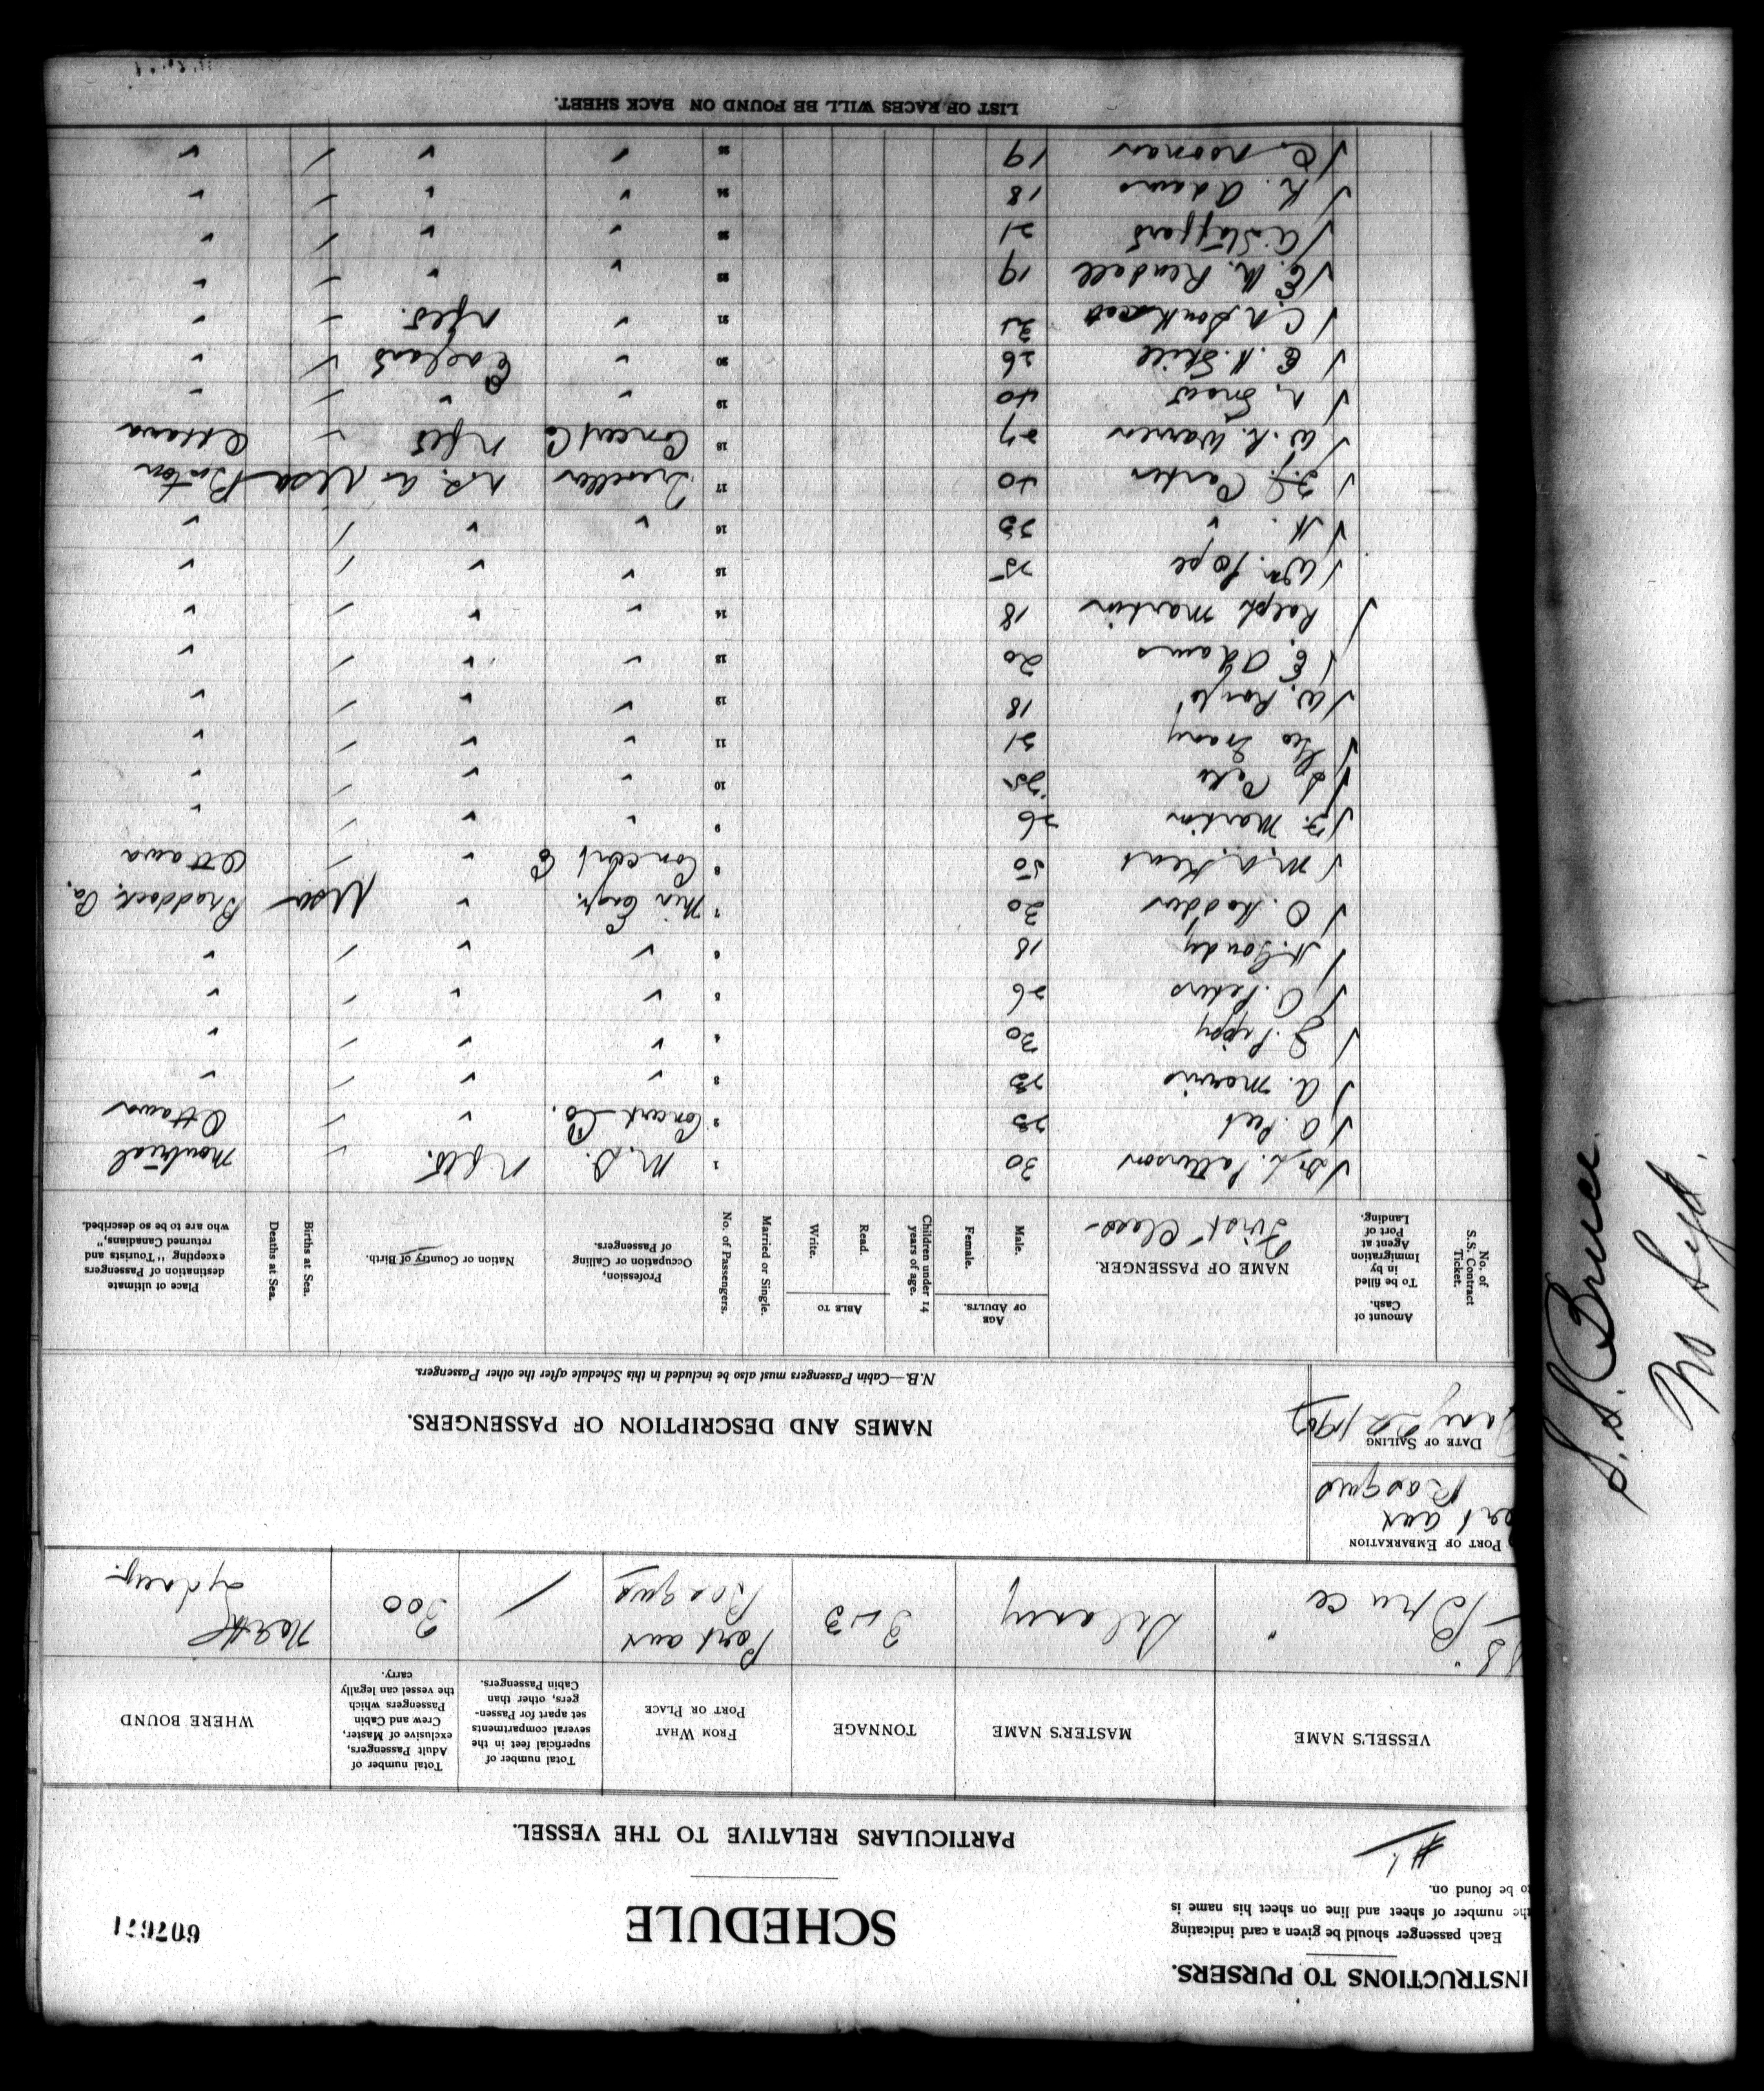 INSTRUCTIONS TO PURSERS.
Each passenger should be given a card indicating
the number of sheet and line on sheet his name is
to be found on.
#1.
SCHEDULE
607671
PARTICULARS RELATIVE TO THE VESSEL.
VESSEL'S NAME
MASTER'S NAME
TONNAGE
FROM WHAT
PORT OR PLACE
Total number of
superficial feet in the
several compartments
set apart for Passen-
gers, other than
Cabin Passengers.
Total number of
Adult Passengers,
exclusive of Master,
Crew and Cabin
Passengers which
the vessel can legally
carry.
WHERE BOUND
SS "Bruce" Delaney Port aux Basque / 300 North Sydney.
PORT OF EMBARKATION
Port aux
Basque
DATE OF SAILING
Jany 22/1907
NAMES AND DESCRIPTION OF PASSENGERS.
N.B.—Cabin Passengers must also be included in this Schedule after the other Passengers.
No. of
S.S. Contract
Ticket.
Amount of
Cash.
To be filled
in by
Immigration
Agent at
Port of
Landing.
NAME OF PASSENGER.
First Class
AGE
OF ADULTS.
Male.
Female.
Children under 14
years of age.
ABLE TO
Read.
Write.
Married or Single.
No. of Passengers.
Profession,
Occupation or Calling
of Passengers.
Nation or Country of Birth.
Births at Sea.
Deaths at Sea.
Place of ultimate
destination of Passengers
excepting "Tourists and
returned Canadians,"
who are to be so described.
Dr L. Patterson 30 1 M.D. Nfld. Montreal
A. Peet 23 2 Concert Co. " Ottawa
A. Morris 23 3 " " "
J. Pippy 30 4 " " "
C. Peters 26 5 " " "
H. Goudy 18 6 " " "
O. Hodder 30 7 Min Engr. " USA Braddock, Pa.
M.A. Keat 50 8 Concert Co " Ottawa
F. Martin 26 9 " " "
25 10 " " "
Geo 21 11 " " "
W. 18 12 " " "
E. Adams 20 13 " " "
Ralph Martin 18 14 " " "
Wm. Pope 25 15 " " "
H. " 23 16 " " "
Carter 40 17 Traveller U.S.A. USA Boston
W.R. Warren 27 18 Concert Co Nfld Ottawa
Snow 40 19 " " "
E. H. 26 20 " England "
C.A. 21 " Nfld. "
E. M. Rendall 19 22 " " "
A. Stafford 21 23 " " "
R. Adams 18 24 " " "
C. Noonan 19 25 " " "
LIST OF RACES WILL BE FOUND ON BACK SHEET.
S.S. Bruce.
No Syd.